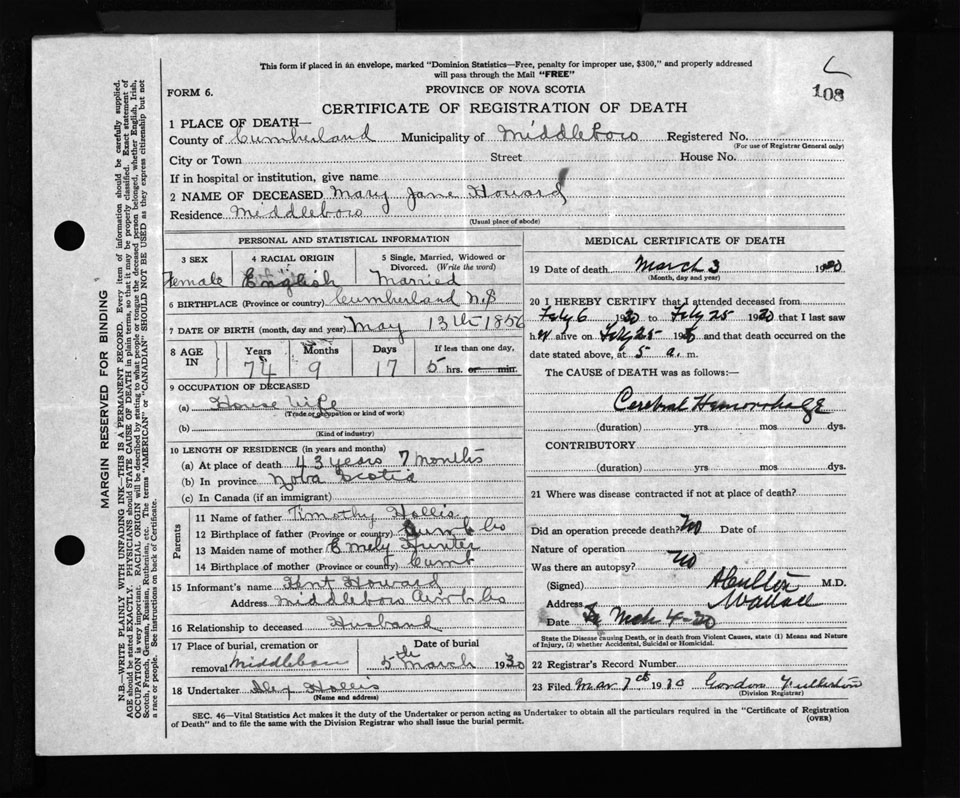 This form if placed in an envelope, marked "Dominion Statistics—Free, penalty for improper use, $300," and properly addressed
will pass through the Mail "FREE"
FORM 6.
PROVINCE OF NOVA SCOTIA
108
CERTIFICATE OF REGISTRATION OF DEATH
1 PLACE OF DEATH—
County of Cumberland Municipality of Middleboro Registered No.
(For use of Registrar General only)
City or Town Street House No.
If in hospital or institution, give name
2 NAME OF DECEASED Mary Jane Howard
Residence Middleboro
(Usual place of abode)
PERSONAL AND STATISTICAL INFORMATION
3 SEX 4 RACIAL ORIGIN 5 Single, Married, Widowed or Divorced. (Write the word)
Female English Married
6 BIRTHPLACE (Province or country) Cumberland N.S
7 DATE OF BIRTH (month, day and year) May 13th 1856
8 AGE IN Years Months Days If less than one day,
74 9 17 5 hrs. or min.
9 OCCUPATION OF DECEASED
(a) House Wife
(Trade or occupation or kind of work)
(b)
(Kind of industry)
10 LENGTH OF RESIDENCE (in years and months)
(a) At place of death 43 years 7 months
(b) In province Nova Scotia
(c) In Canada (if an immigrant)
Parents
11 Name of father Timothy Hollis
12 Birthplace of father (Province or country) Cumb Co
13 Maiden name of mother Emely Hunter
14 Birthplace of mother (Province or country) Cumb
15 Informant's name Kent Howard
Address Middleboro Cumb Co
16 Relationship to deceased Husband
17 Place of burial, cremation or removal Middleboro Date of burial 5th March 1930
18 Undertaker Alex Hollis
(Name and address)
MEDICAL CERTIFICATE OF DEATH
19 Date of death March 3 1930
(Month, day and year)
20 I HEREBY CERTIFY that I attended deceased from
Feby 6 1930 to Feby 25 1930 that I last saw
her alive on Feby 25 1930 and that death occurred on the
date stated above, at 5 a. m.
The CAUSE of DEATH was as follows:—
Cerebral Hemorrhage
(duration) yrs mos dys.
CONTRIBUTORY
(duration) yrs mos dys.
21 Where was disease contracted if not at place of death?
Did an operation precede death? No Date of
Nature of operation
Was there an autopsy? No
(Signed) M.D.
Address Wallace
Date Mch 4-30
State the Disease causing Death, or in death from Violent Causes, state (1) Means and Nature
of Injury, (2) whether Accidental, Suicidal or Homicidal.
22 Registrar's Record Number
23 Filed Mar 7th 1930 Gordon Fullerton
(Division Registrar)
SEC. 46—Vital Statistics Act makes it the duty of the Undertaker or person acting as Undertaker to obtain all the particulars required in the "Certificate of Registration
of Death" and to file the same with the Division Registrar who shall issue the burial permit.
(OVER)
MARGIN RESERVED FOR BINDING
N.B.—WRITE PLAINLY WITH UNFADING INK—THIS IS A PERMANENT RECORD. Every item of information should be carefully supplied.
AGE should be stated EXACTLY. PHYSICIANS should STATE CAUSE OF DEATH in plain terms, so that it may be properly classified. Exact statement of
OCCUPATION is very important. RACIAL ORIGIN will be described by stating to what people or tongue the deceased person belonged, whether English, Irish,
Scotch, French, German, Russian, Ruthenian, etc. The terms "AMERICAN" or "CANADIAN" SHOULD NOT BE USED as they express citizenship but not
a race or people. See instructions on back of Certificate.